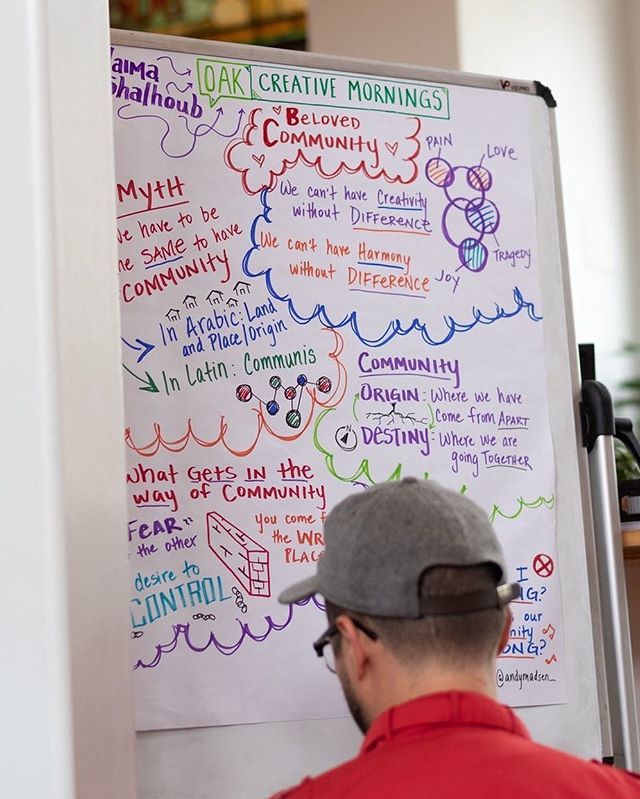 Shalhoub
OAK CREATIVE MORNINGS
BELOVED
COMMUNITY
PAIN
LOVE
TRAGEDY
JOY
We can't have Creativity
without DIFFERENCE
We can't have Harmony
without DIFFERENCE
MYTH
have to be
SAME to have
COMMUNITY
In Arabic: Land
and Place/Origin
In Latin: Communis
COMMUNITY
ORIGIN: Where we have
come from APART
DESTINY: Where we are
going TOGETHER
What GETS IN the
way of COMMUNITY
"FEAR"
the other
desire to
CONTROL
you come
the
I
our
@andymadsen_